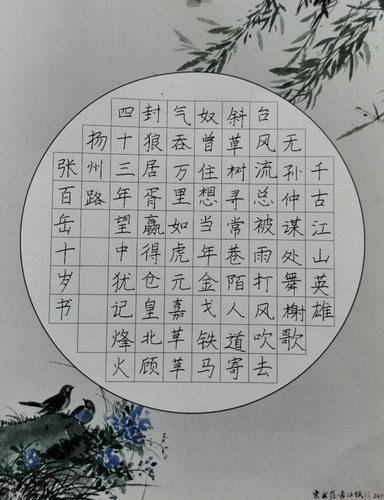 千古江山英雄
无孙仲谋处舞榭歌
台风流总被雨打风吹去
斜草树寻常巷陌人道寄
奴曾住想当年金戈铁马
气吞万里如虎元嘉草草
封狼居胥赢得仓皇北顾
四十三年望中犹记烽火
扬州路
张百岳十岁书